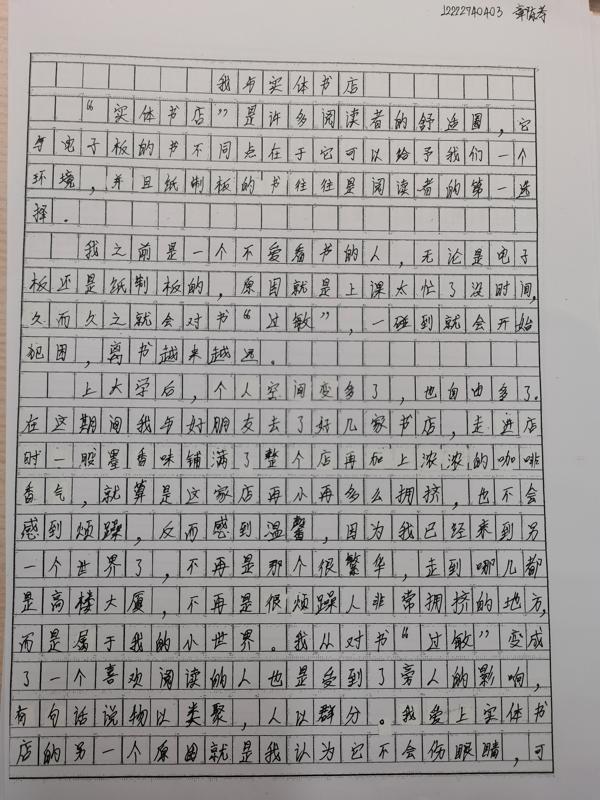 12222740403
我与实体书店
“实体书店”是许多阅读者的舒适圈，它
与电子板的书不同点在于它可以给予我们一个
环境，并且纸制板的书往往是阅读者的第一选
择.
我之前是一个不爱看书的人，无论是电子
板还是纸制板的，原因就是上课太忙了没时间，
久而久之就会对书“过敏”，一碰到就会开始
犯困，离书越来越远.
上大学后，个人空间变多了，也自由多了.
在这期间我与好朋友去了好几家书店，走进店
时一股墨香味铺满了整个店再加上浓浓的咖啡
香气，就算是这家店再小再多么拥挤，也不会
感到烦躁，反而感到温馨，因为我已经来到另
一个世界了，不再是那个很繁华，走到哪儿都
是高楼大厦，不再是很烦躁人非常拥挤的地方，
而是属于我的小世界。我从对书“过敏”变成
了一个喜欢阅读的人也是受到了旁人的影响，
有句话说物以类聚，人以群分。我爱上实体书
店的另一个原因就是我认为它不会伤眼睛，可